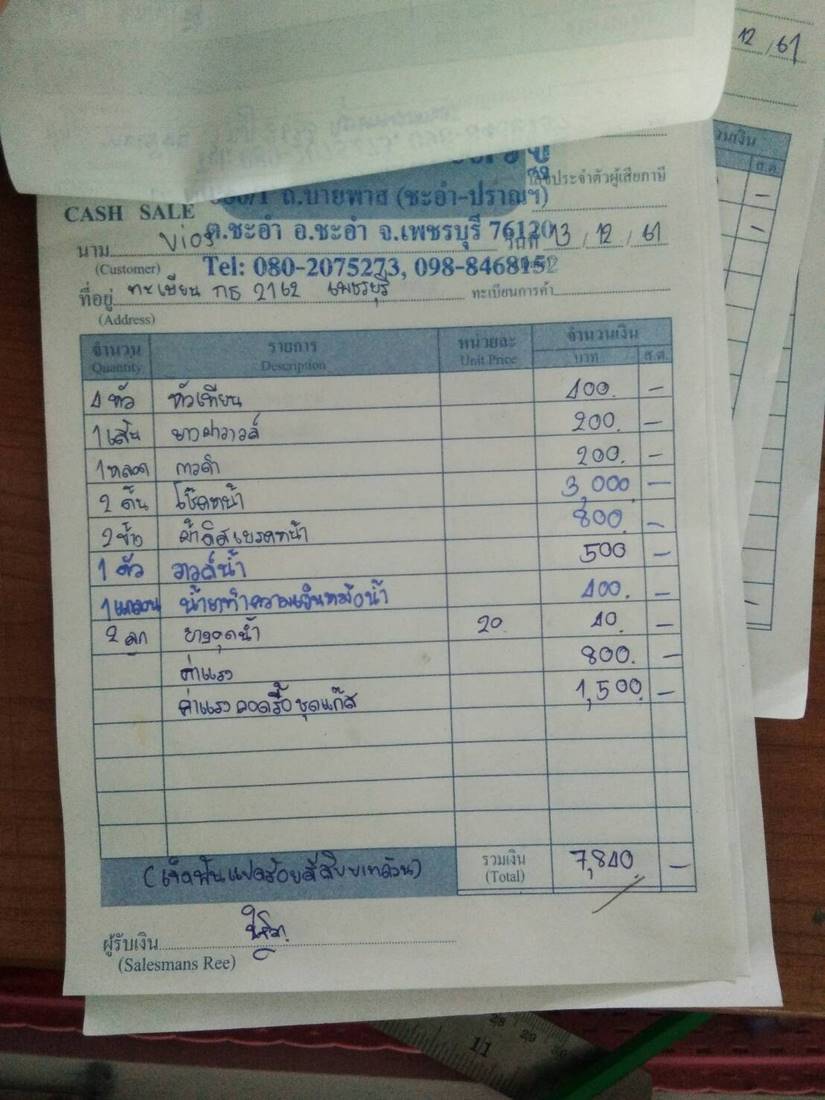 12 / 61
ถ.บายพาส (ชะอำ-ปราณฯ)
ประจำตัวผู้เสียภาษี
CASH SALE
ต.ชะอำ อ.ชะอำ จ.เพชรบุรี 76120
นาม Vios วันที่ 13 / 12 / 61
(Customer) Tel: 080-2075273, 098-8468152
ที่อยู่ ทะเบียน กธ 2162 เพชรบุรี ทะเบียนการค้า
(Address)
จำนวน รายการ หน่วยละ จำนวนเงิน
Quantity Description Unit Price บาท ส.ต.
4 หัว หัวเทียน 400. –
1 เส้น ยางฝาวาวล์ 200. –
1 หลอด กาวดำ 200. –
2 ต้น โช๊คหน้า 3,000 –
2 ข้าง ผ้าดิสเบรคหน้า 800. –
1 ตัว วาวล์น้ำ 500 –
1 แกลอน น้ำยาทำความเย็นหม้อน้ำ 400. –
2 ลูก ยางอุดน้ำ 20. 40. –
ค่าแรง 800. –
ค่าแรงถอดรื้อชุดแก๊ส 1,500. –
(เจ็ดพันแปดร้อยสี่สิบบาทถ้วน) รวมเงิน 7,840. –
(Total)
ผู้รับเงิน
(Salesmans Ree)
11